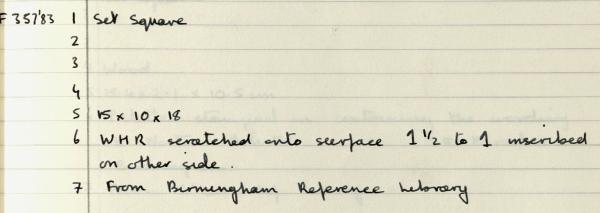 F 357'83 1 Set Square
2
3
4
5 15 x 10 x 18
6 WHR scratched onto surface 1 1/2 to 1 inscribed
on other side.
7 From Birmingham Reference Library